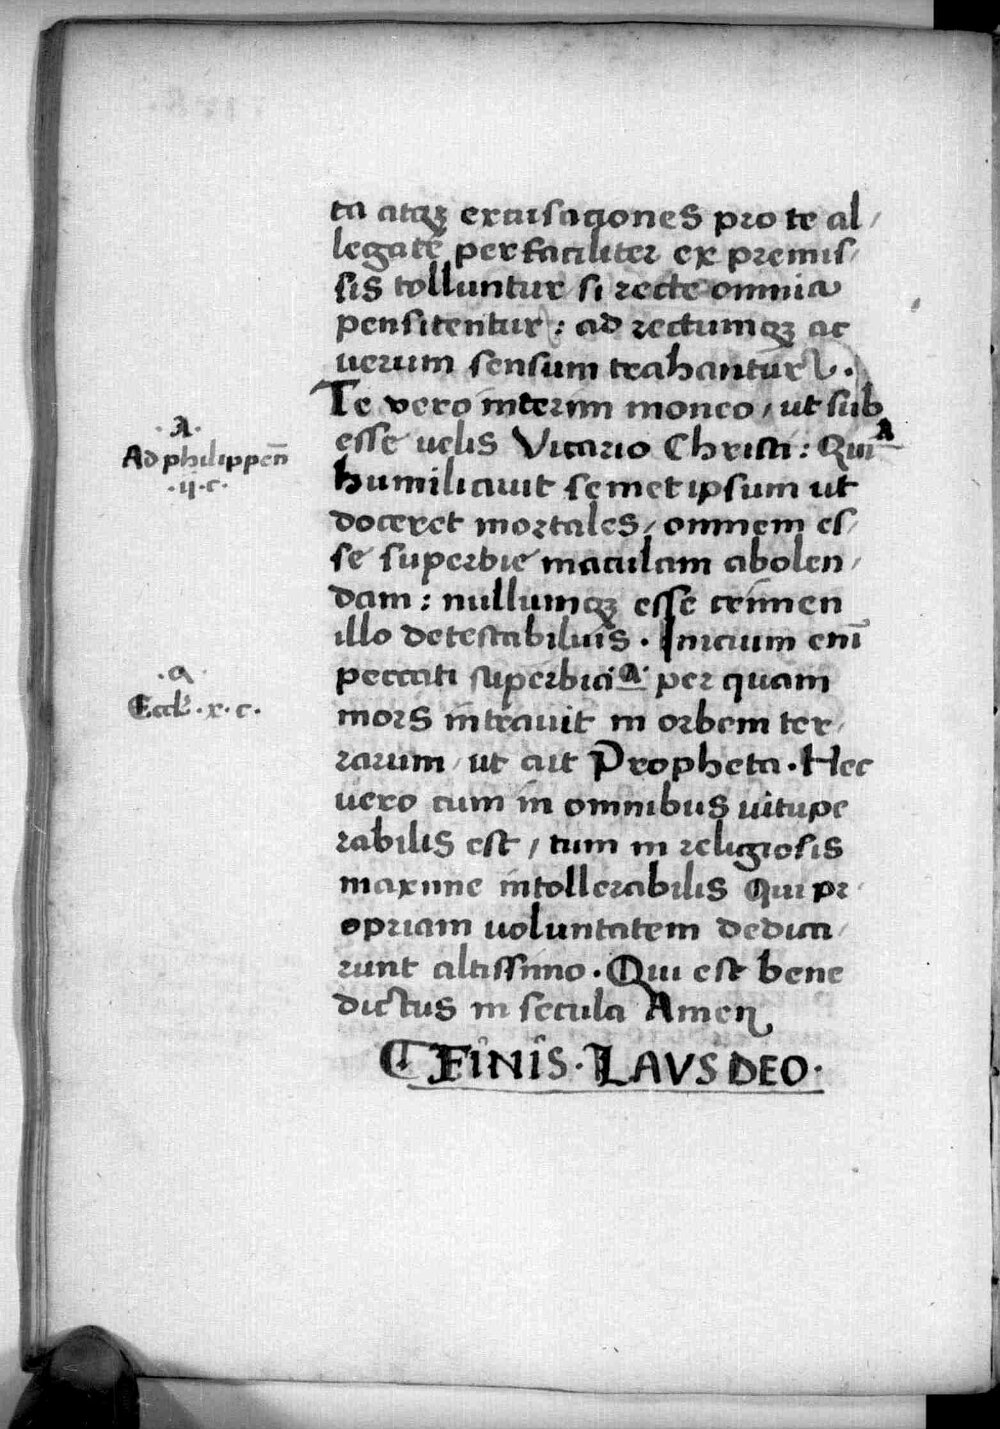 ta atqꝫ excusationes pro te al/
legate perfaciliter ex premis/
sis tolluntur si recte omnia
pensitentur: ad rectumqꝫ ac
uerum sensum trahantur.
Te vero interim moneo, ut sub
esse uelis Vicario Christi: Qui A
.A.
Ad philippen̄
.ij.c.
humiliauit semet ipsum ut
doceret mortales, omnem es/
se superbie maculam abolen/
dam: nullumqꝫ esse crimen
illo detestabilius. Inicium enī
peccati superbia a per quam
.a.
Eccl̄.x.c.
mors intrauit in orbem ter/
rarum, ut ait Propheta. Hec
uero cum in omnibus uitupe
rabilis est, tum in religiosis
maxime intollerabilis Qui pr/
opriam uoluntatem dedica/
runt altissimo. Qui est bene
dictus in secula Amen
FINIS. LAVS DEO.